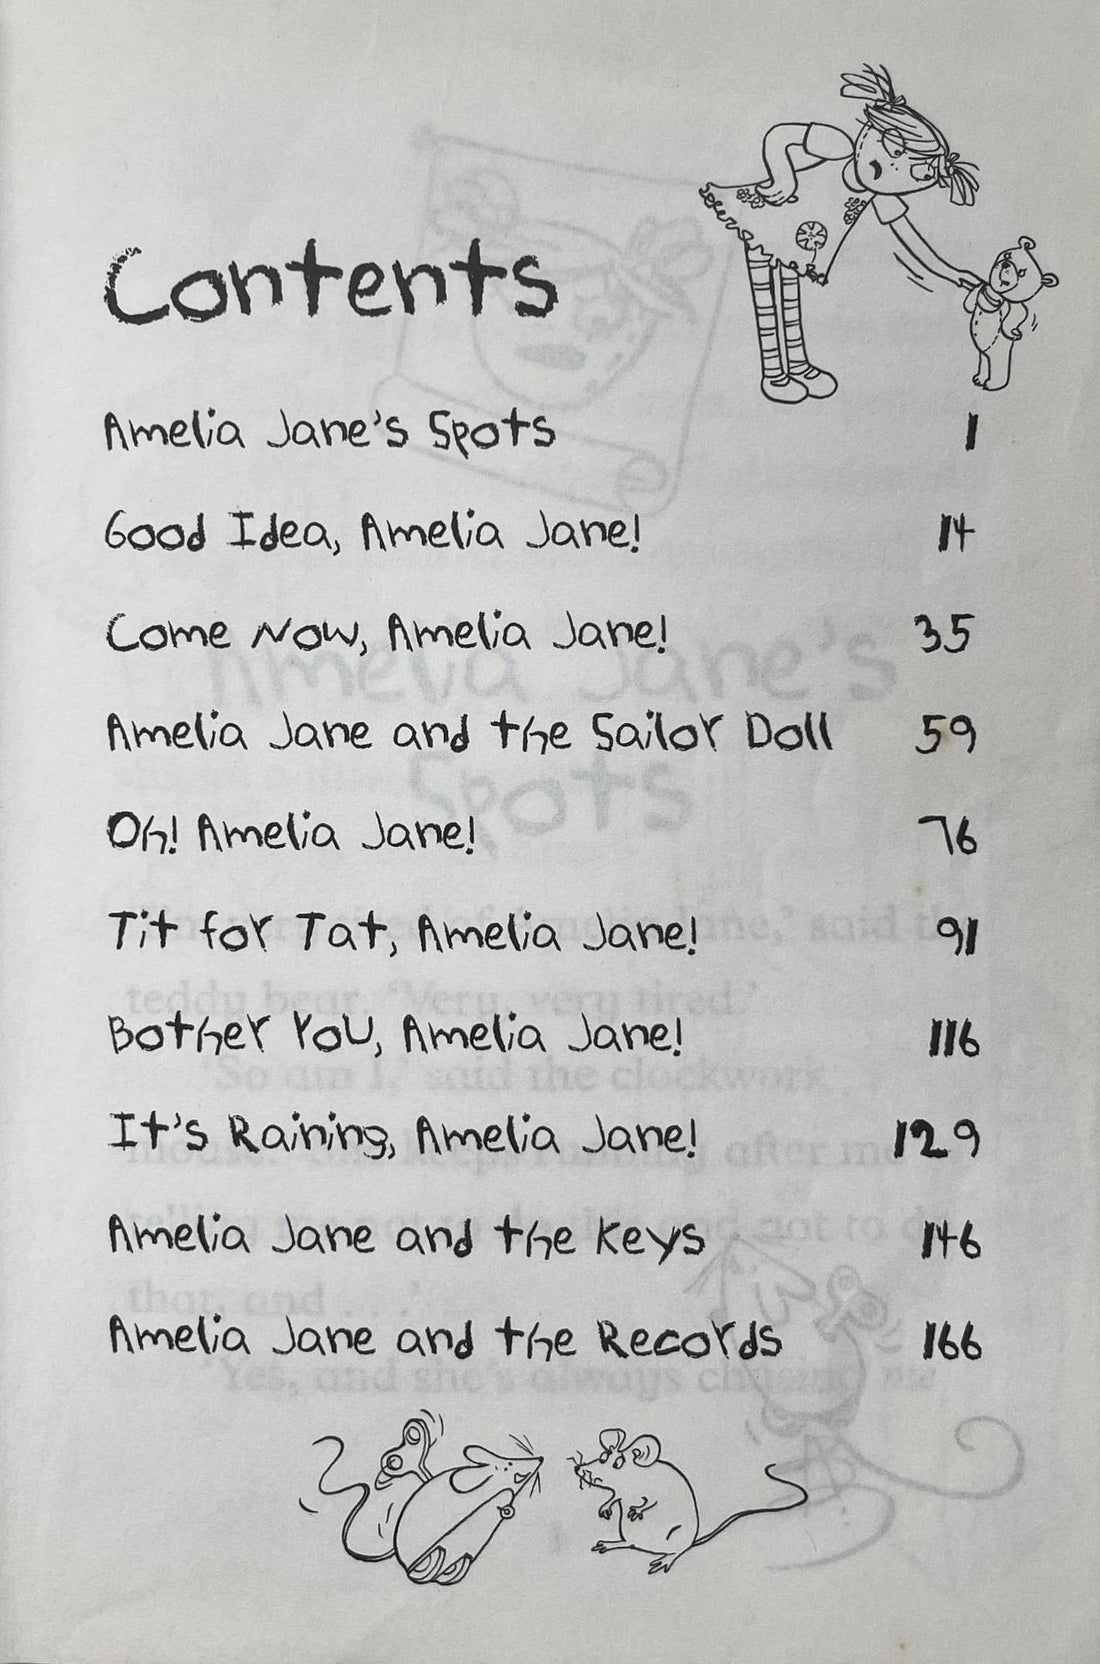 Contents
Amelia Jane's Spots 1
Good Idea, Amelia Jane! 14
Come Now, Amelia Jane! 35
Amelia Jane and the Sailor Doll 59
Oh! Amelia Jane! 76
Tit for Tat, Amelia Jane! 91
Bother You, Amelia Jane! 116
It's Raining, Amelia Jane! 129
Amelia Jane and the Keys 146
Amelia Jane and the Records 166